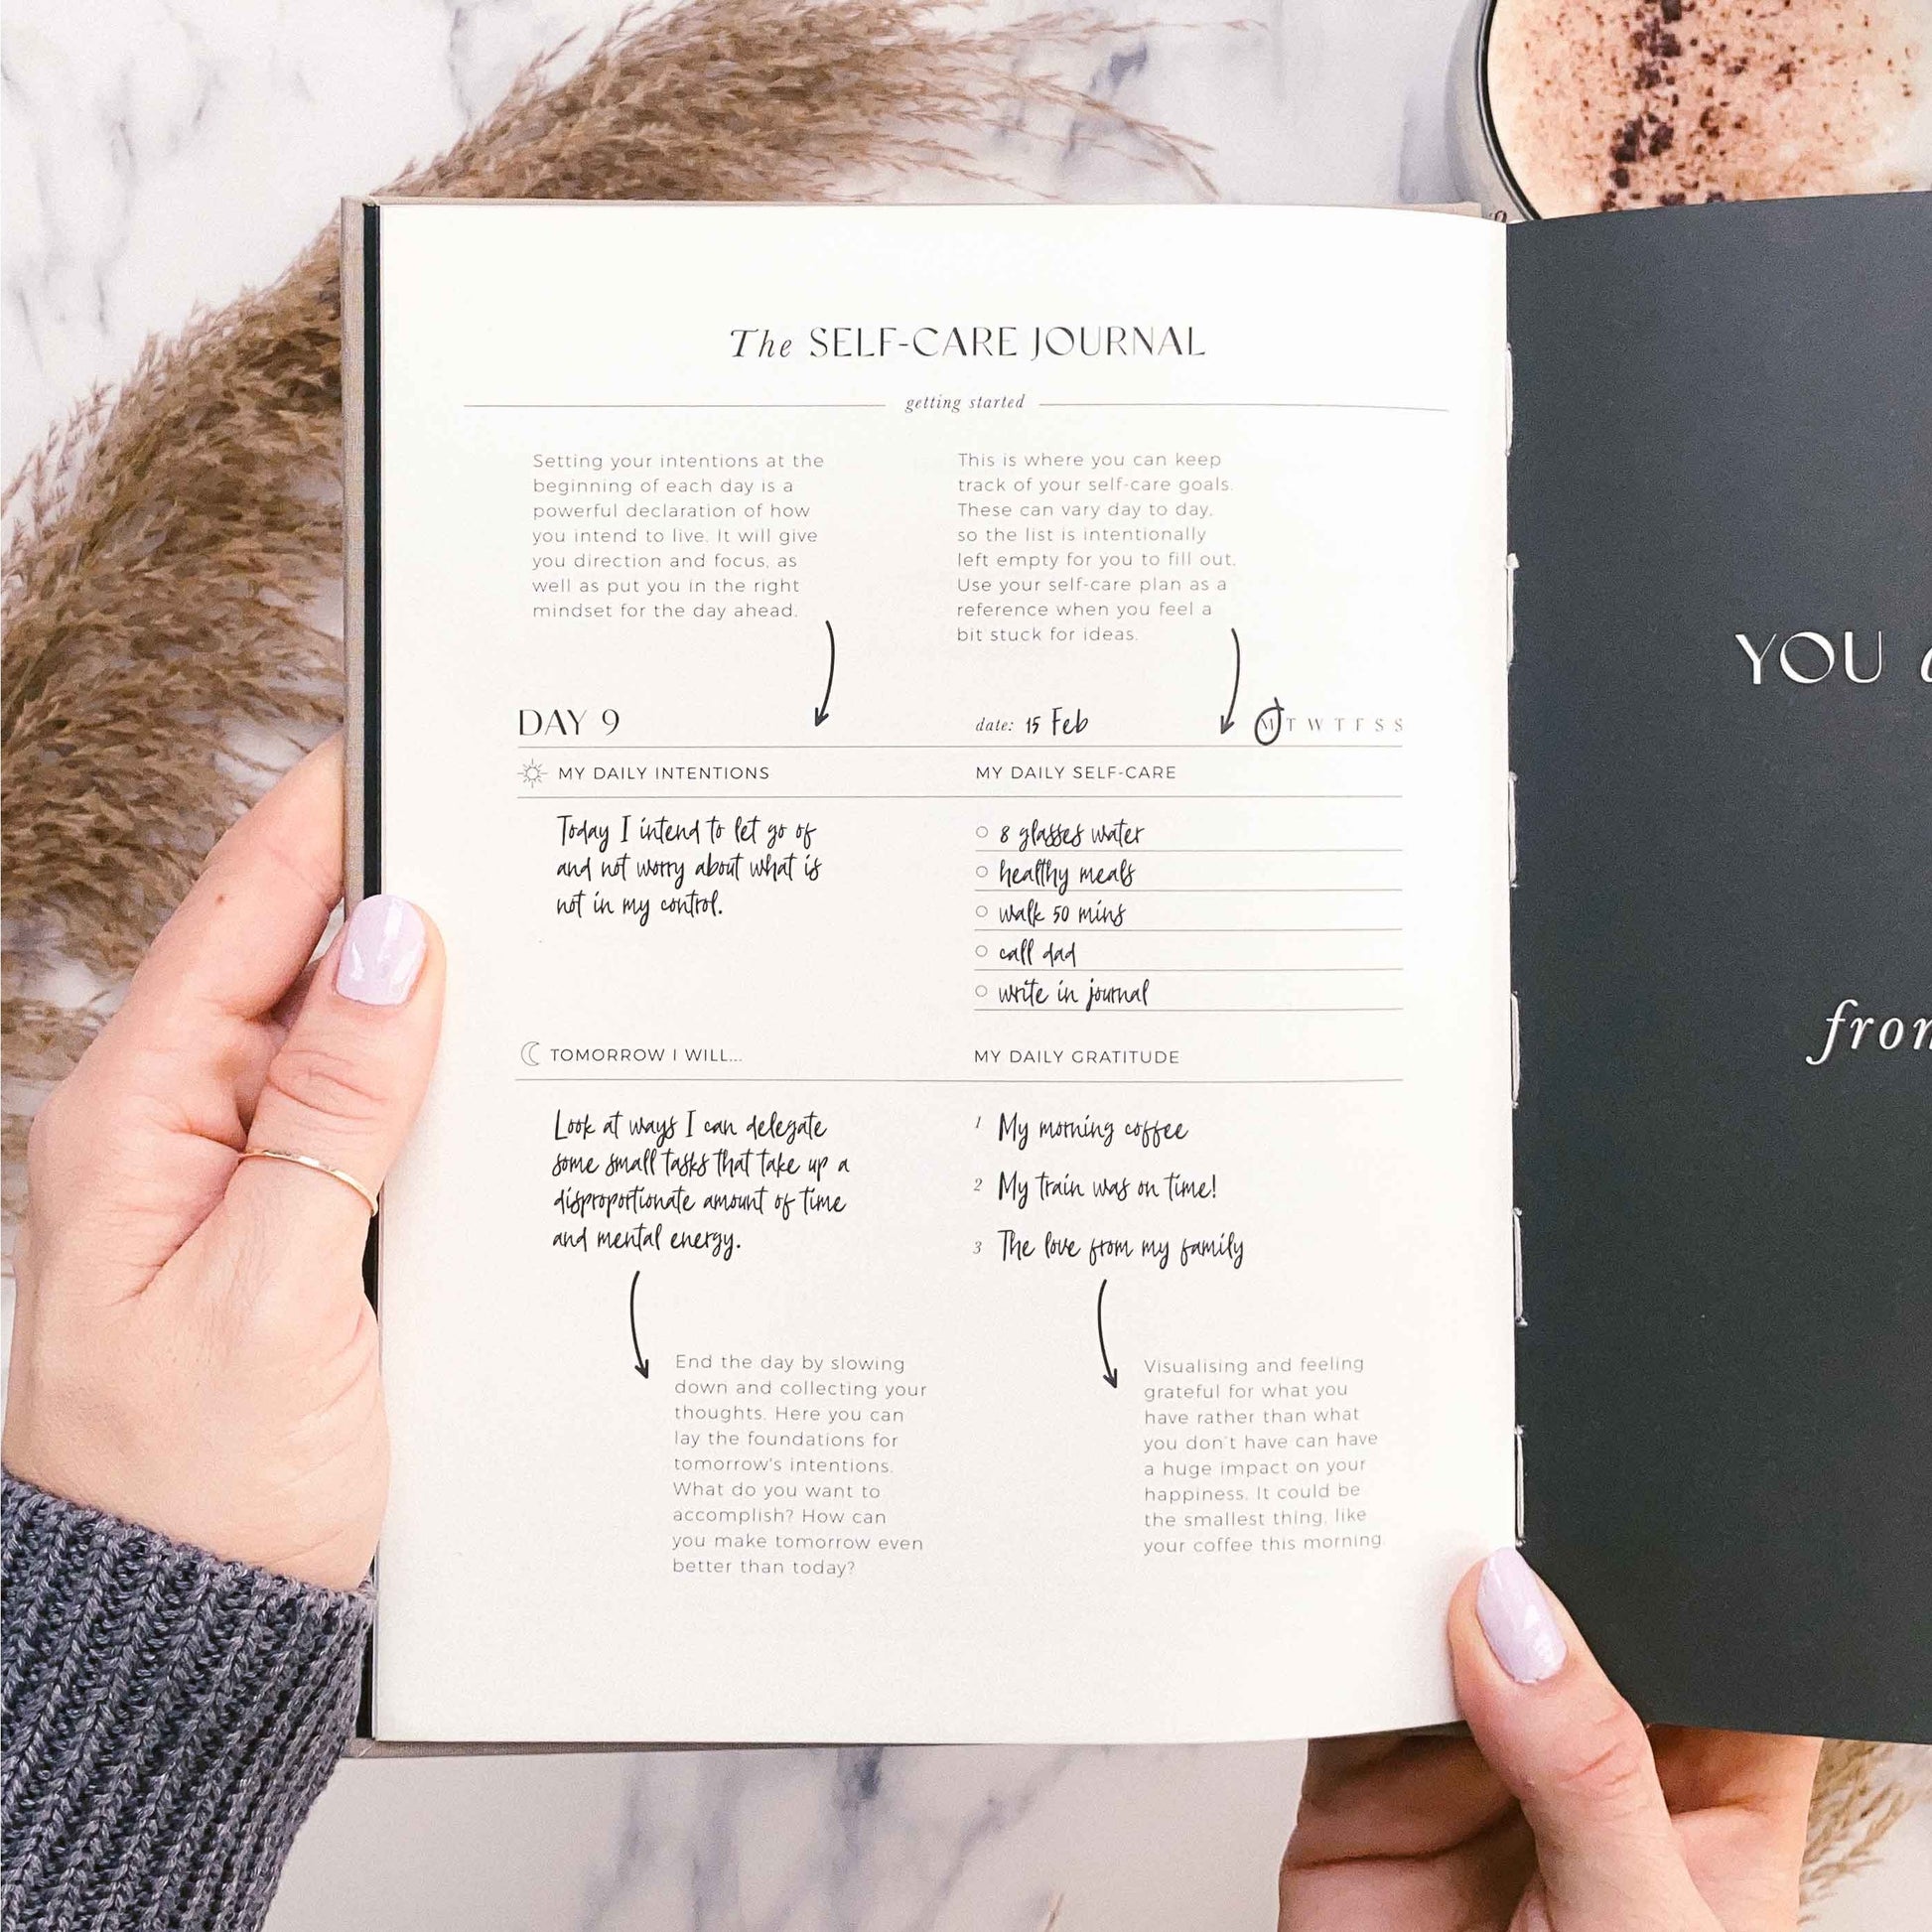 The SELF-CARE JOURNAL
getting started
Setting your intentions at the
beginning of each day is a
powerful declaration of how
you intend to live. It will give
you direction and focus, as
well as put you in the right
mindset for the day ahead.
This is where you can keep
track of your self-care goals.
These can vary day to day,
so the list is intentionally
left empty for you to fill out.
Use your self-care plan as a
reference when you feel a
bit stuck for ideas.
DAY 9
date: 15 Feb
M T W T F S S
MY DAILY INTENTIONS
Today I intend to let go of
and not worry about what is
not in my control.
MY DAILY SELF-CARE
8 glasses water
healthy meals
walk 50 mins
call dad
write in journal
TOMORROW I WILL...
Look at ways I can delegate
some small tasks that take up a
disproportionate amount of time
and mental energy.
MY DAILY GRATITUDE
1 My morning coffee
2 My train was on time!
3 The love from my family
End the day by slowing
down and collecting your
thoughts. Here you can
lay the foundations for
tomorrow's intentions.
What do you want to
accomplish? How can
you make tomorrow even
better than today?
Visualising and feeling
grateful for what you
have rather than what
you don't have can have
a huge impact on your
happiness. It could be
the smallest thing, like
your coffee this morning.
YOU